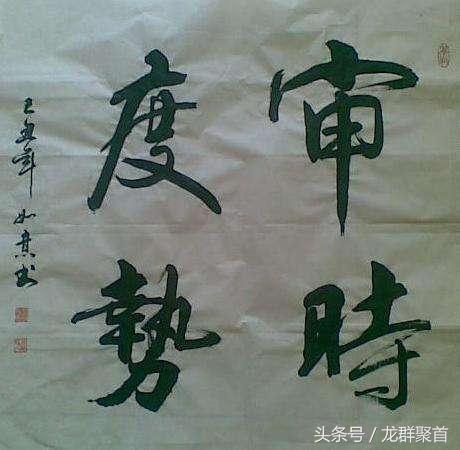 审時
度勢
己丑年 如意书
头条号 / 龙群聚首